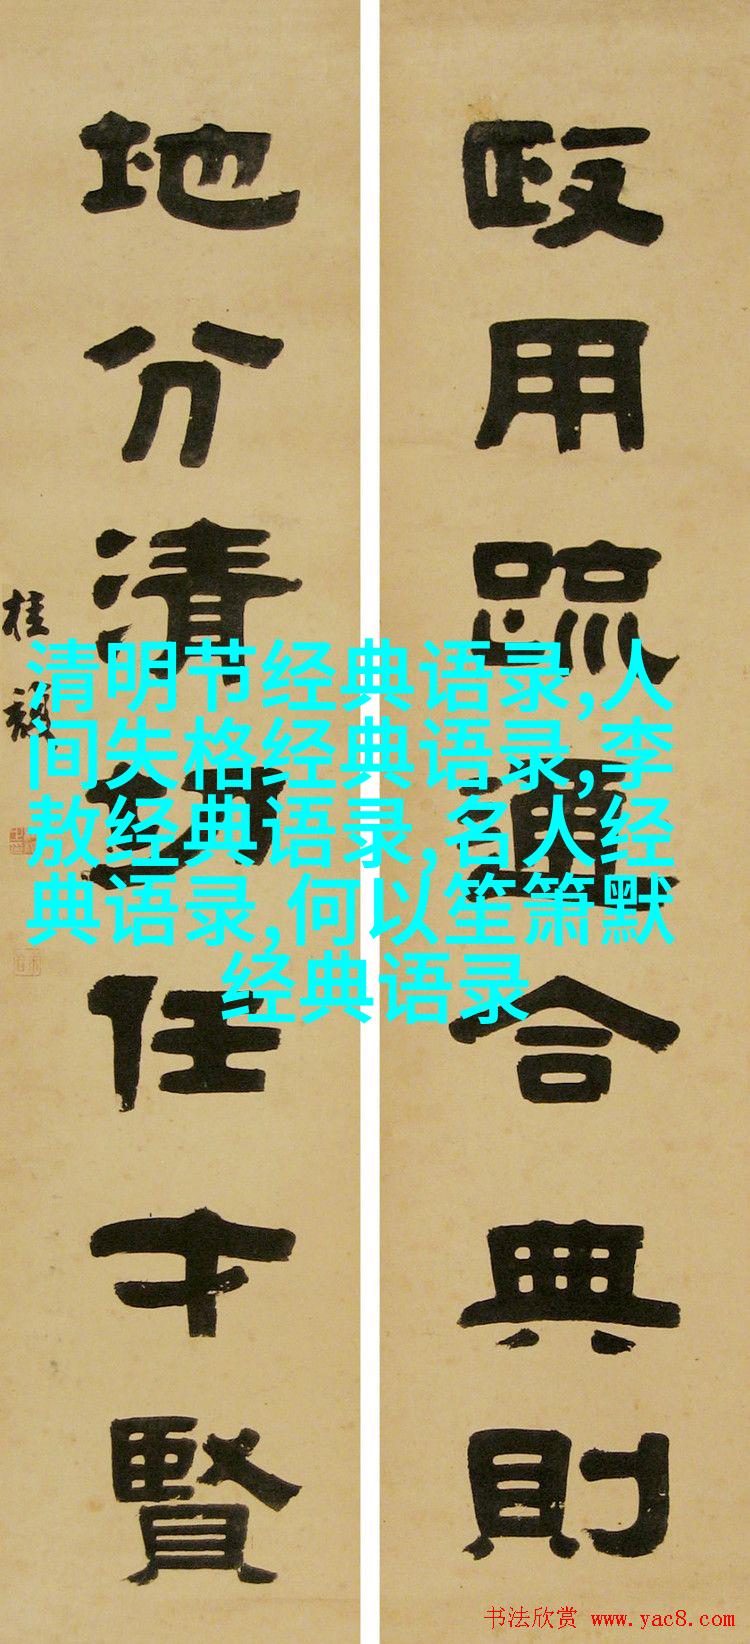 政用疏通合典則
地分清切任才賢
桂馥
清明节经典语录,人
间失格经典语录,李
敖经典语录,名人经
典语录,何以笙箫默
经典语录
书法欣赏 www.yac8.com